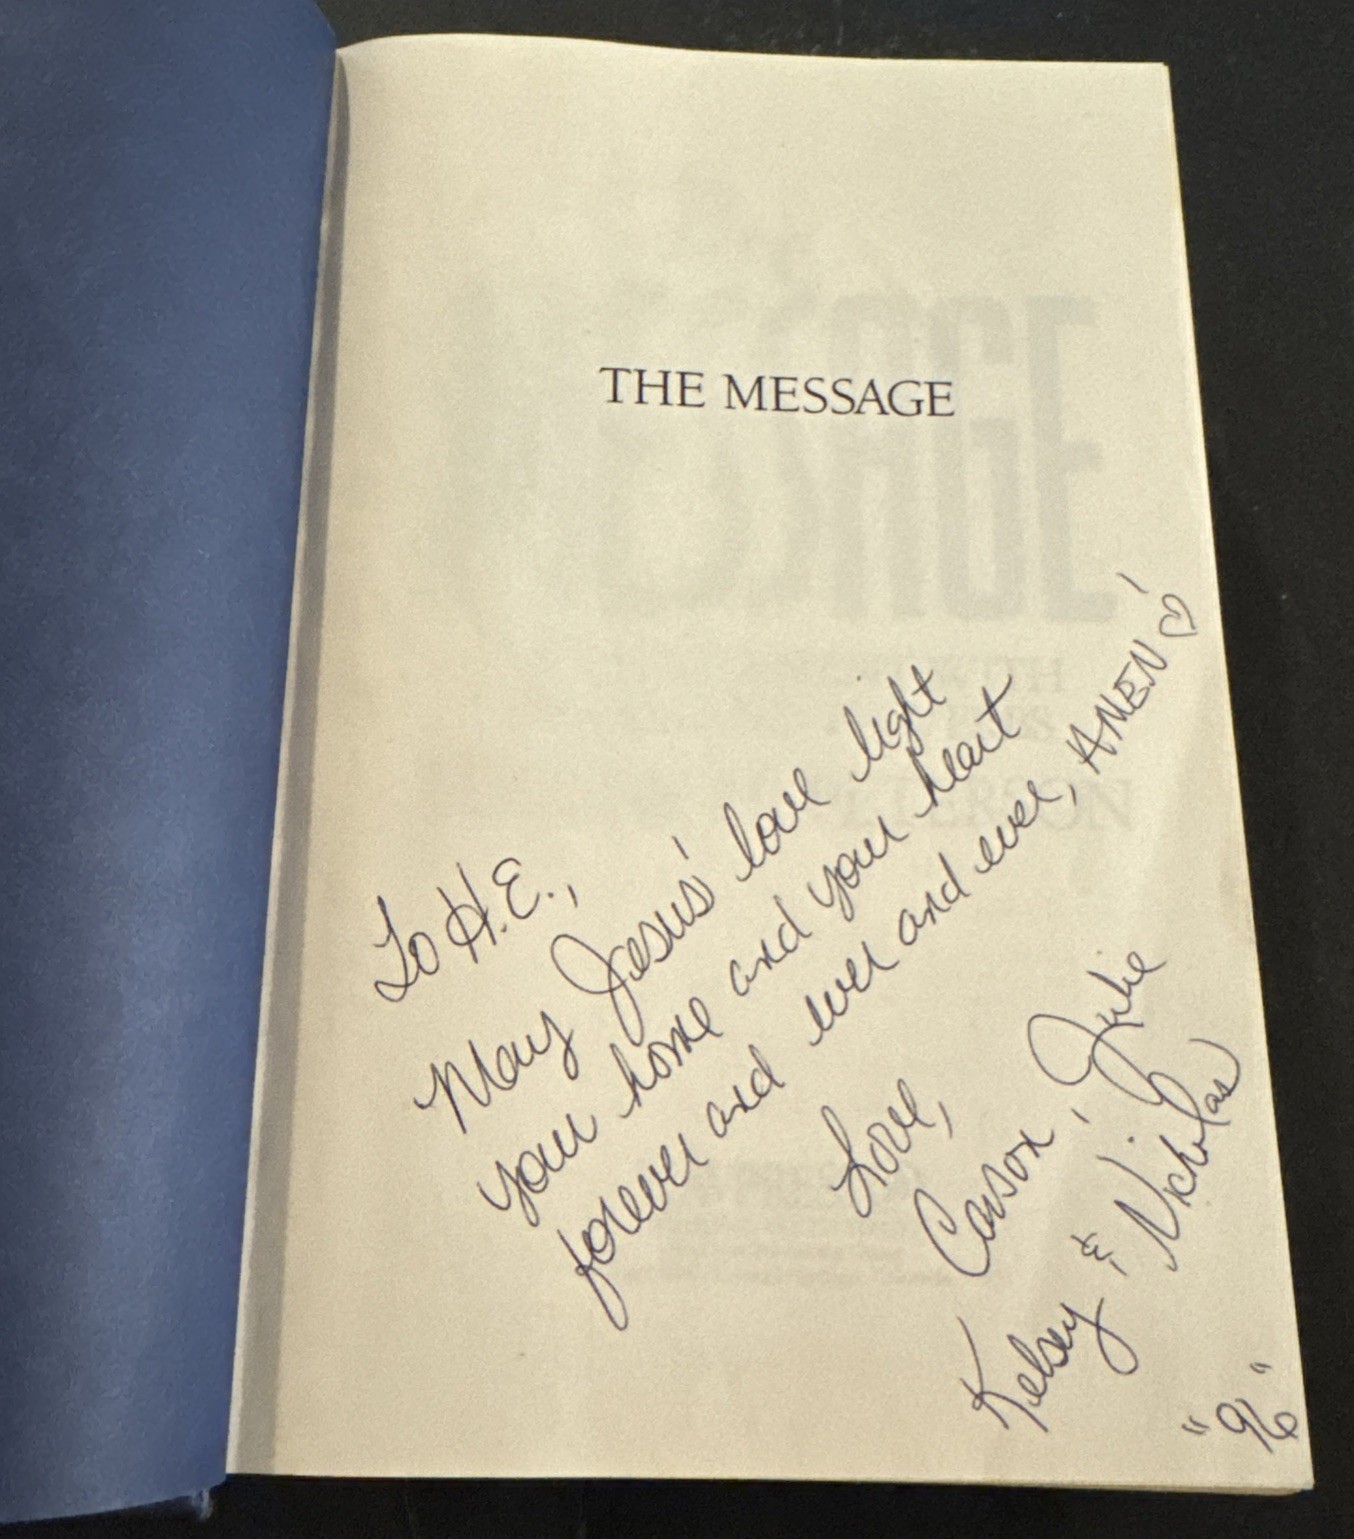 THE MESSAGE
To H.E.,
May Jesus' love light
your home and your heart
forever and ever and ever, AMEN! ♡
Love,
Carson, Julie
Kelsey & Nicholas
"96"